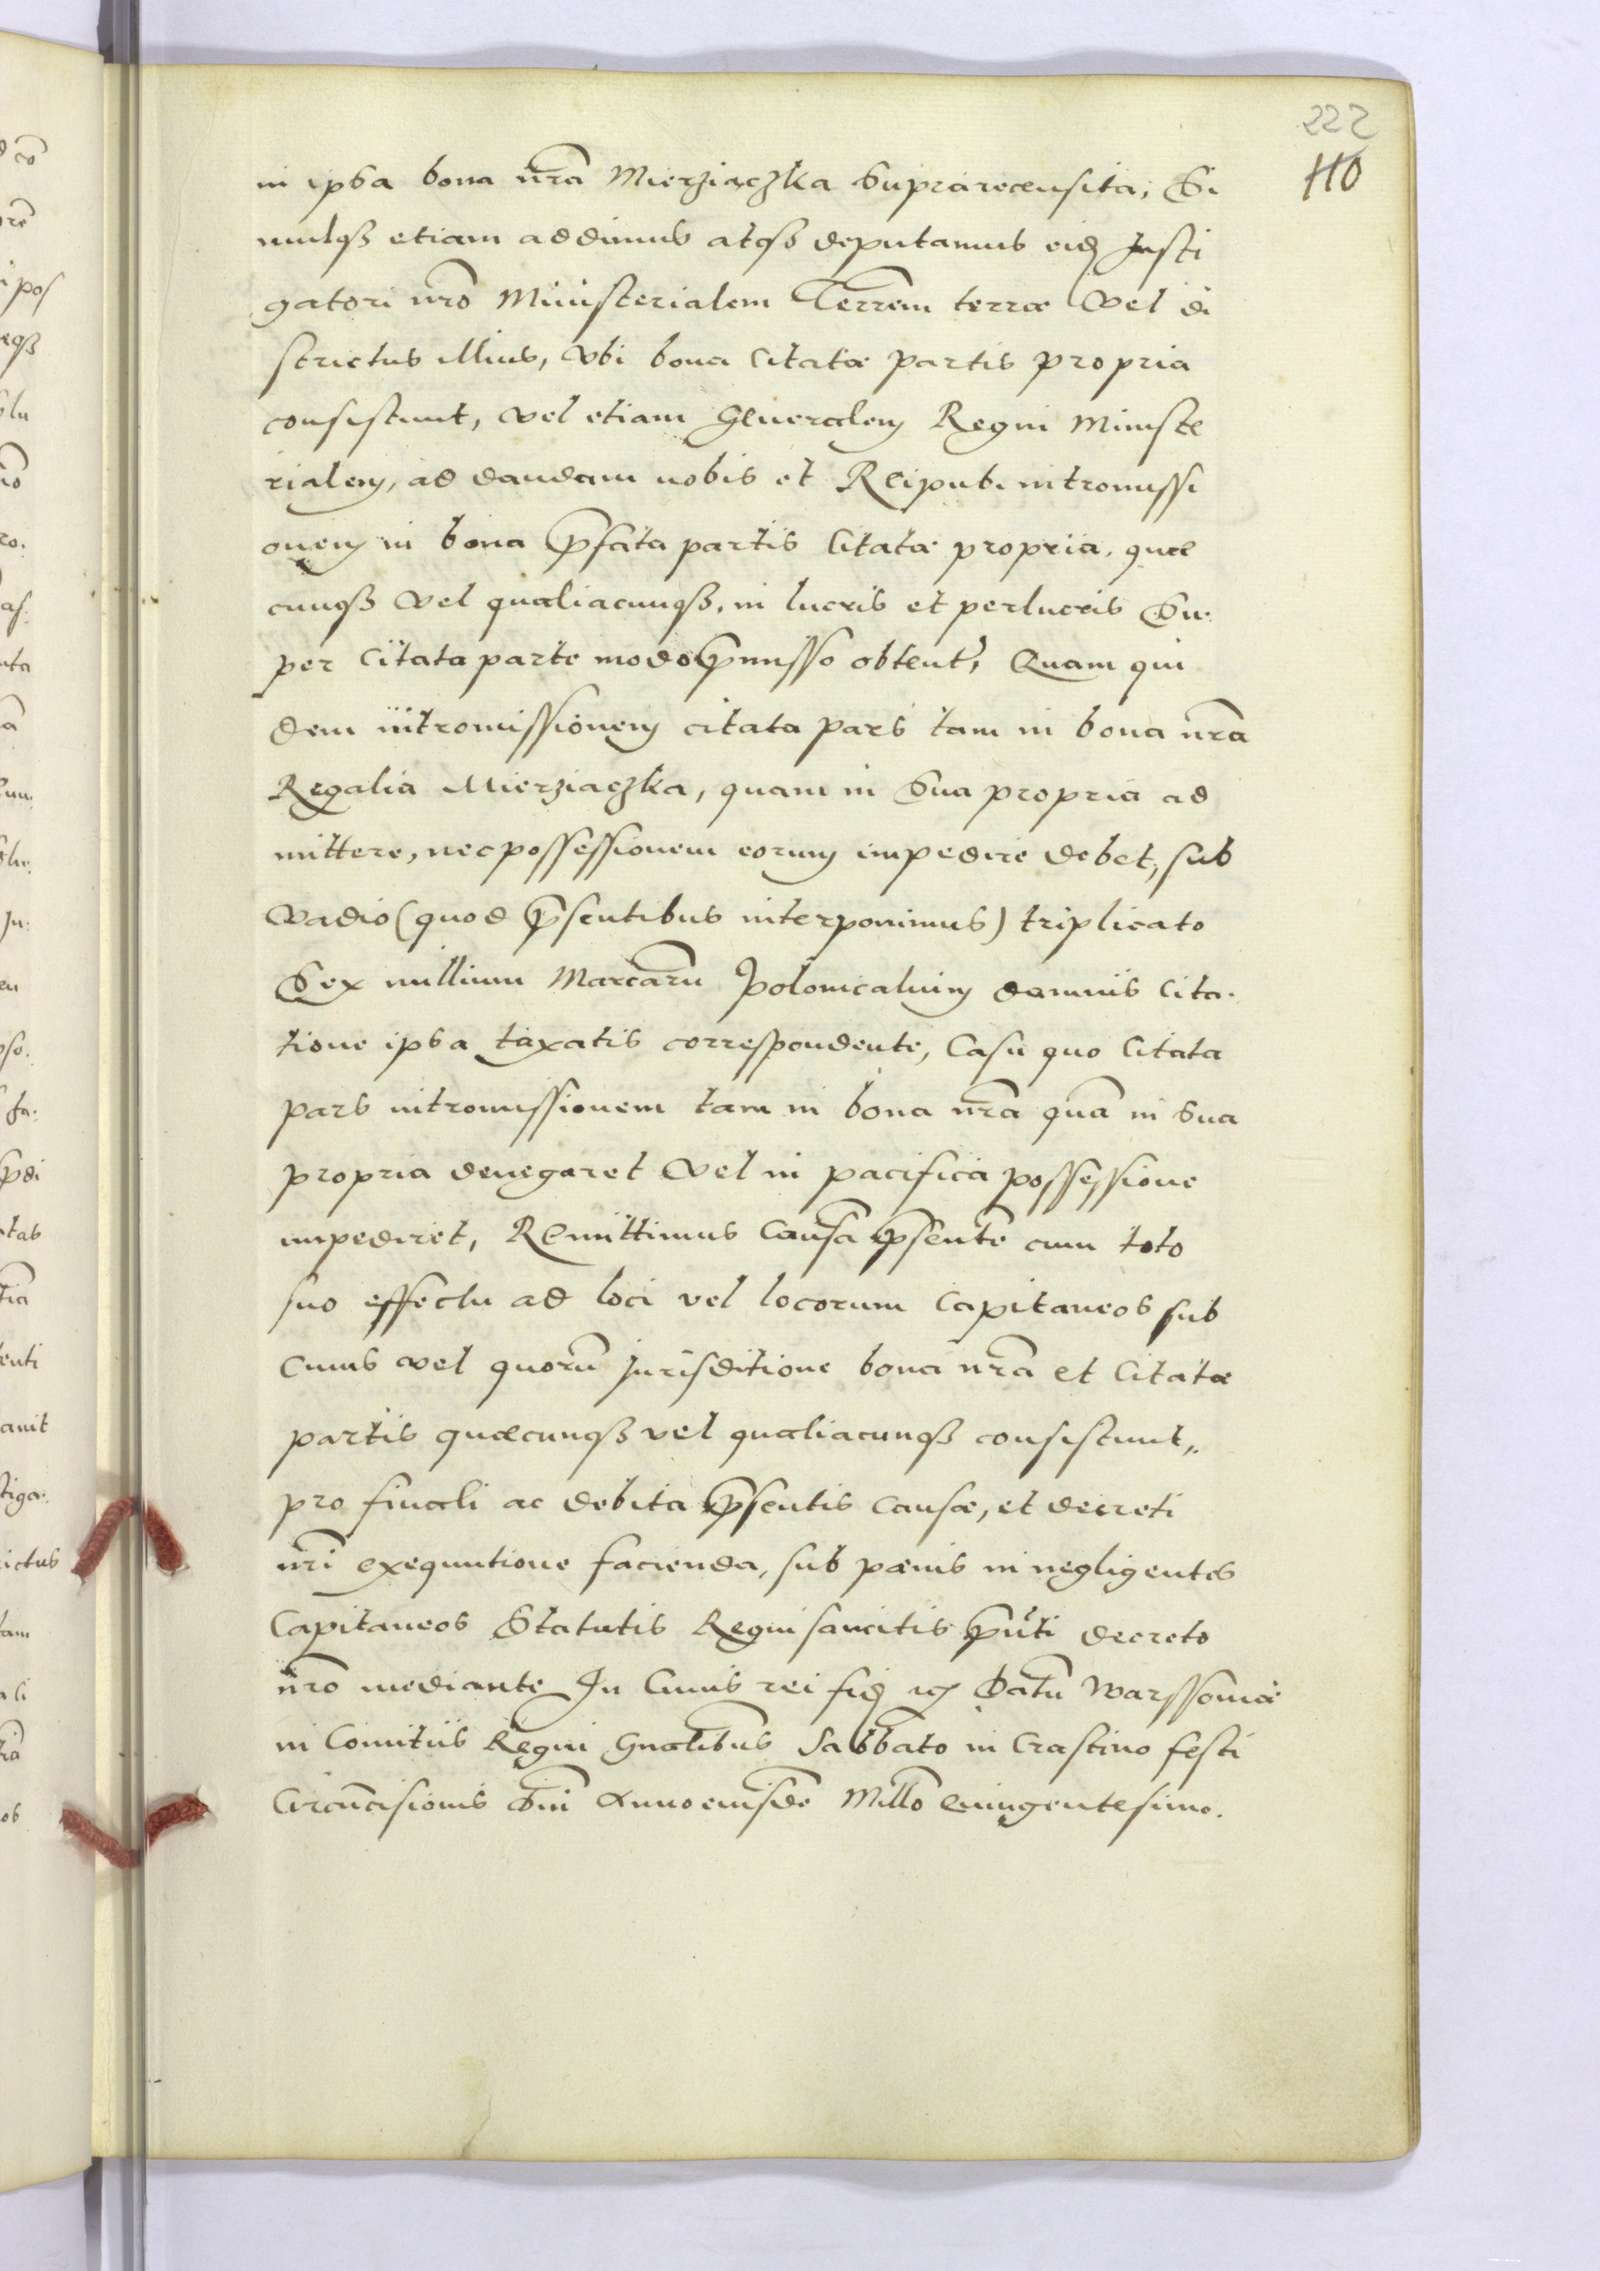 222
110
in ipsa bona nr̃a Mierziączka suprarecensita, Si
mulqß etiam addimus atqß deputamus eid Insti
gatori nr̃o Ministerialem Terrẽm terræ vel di
strictus illius, vbi bona Citatæ partis propria
consistunt, vel etiam Generalem Regni Ministe
rialem, ad dandam nobis et Reipub. intromissi
onem in bona p̃fata partis Citatæ propria, quæ
cunqß vel qualiacunqß, in lucris et perlucris Su.
per Citata parte modo p̃misso obtent', Quam qui
dem intromissionem citata pars tam in bona nr̃a
Regalia Mierziączka, quam in sua propria ad
mittere, nec possessionem eorum impedire debet, sub
vadio (quod p̃sentibus interponimus) triplicato
Sex millium Marcarũ Polonicalium damnis Cita.
tione ipsa taxatis correspondente, Casu quo Citata
pars intromissionem tam in bona nr̃a quã in sua
propria denegaret vel in pacifica possessione
impediret, Remittimus Causã p̃sentẽ cum toto
suo effectu ad loci vel locorum Capitaneos sub
Cuius vel quorũ Jurisditione bona nr̃a et Citatæ
partis quæcunqß vel qualiacunqß consistunt,
pro finali ac debita p̃sentis causæ, et decreti
nr̃i exequutione facienda, sub pænis in negligentes
Capitaneos Statutis Regni sancitis p̃nti decreto
nr̃o mediante In Cuius rei fid Datũ Warssoviæ
in Comitiis Regni Gnãlibus Sabbato in Crastino festi
Circũcisionis Dñi Anno eiusdẽ Millõ Quingentesimo.